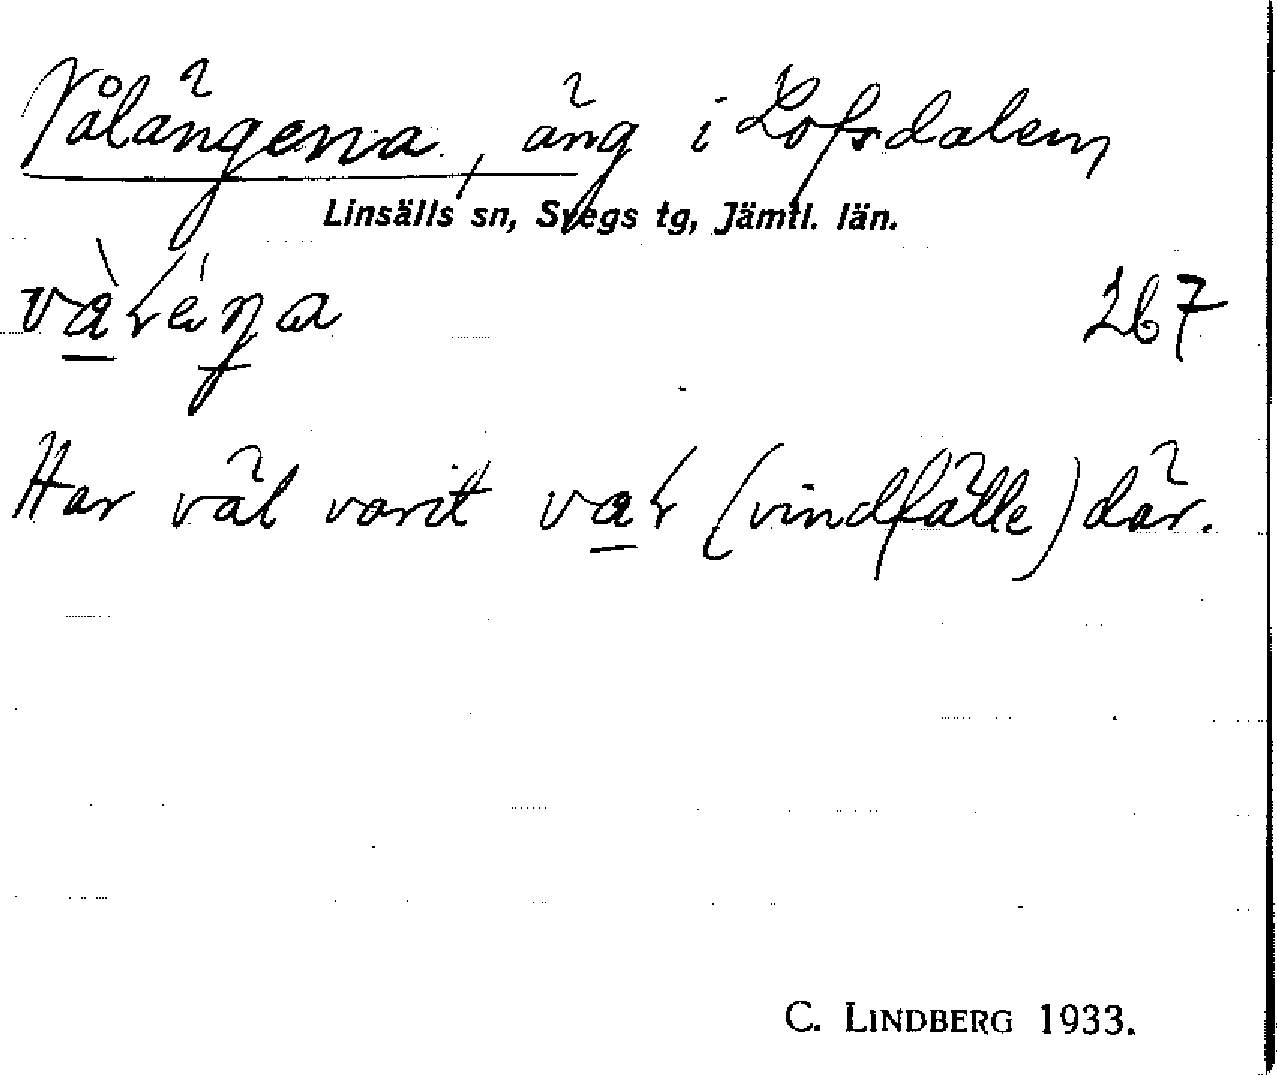 Vålängena, äng i Lofsdalen
Linsälls sn, Svegs tg, Jämtl. län.
267
Har väl varit (vindfälle) där.
C. LINDBERG 1933.